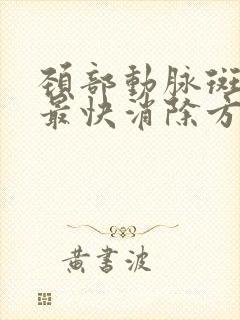 頸部動脉斑
最快消除方
黄書波